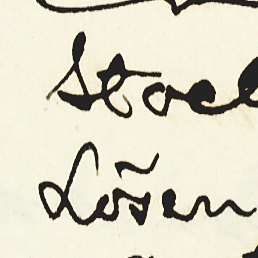 Stock
Lösen